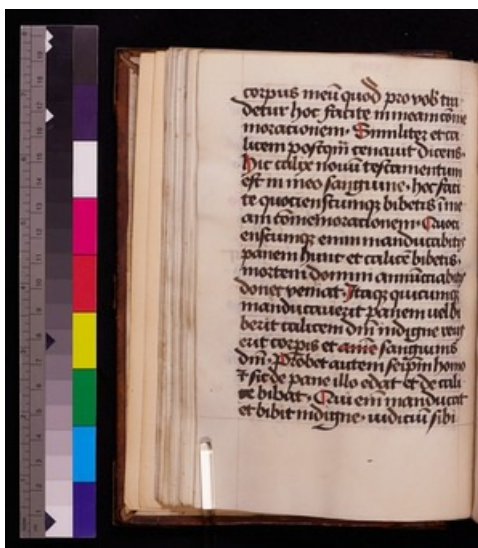 corpus meū quod pro vob̄ tra
detur hoc facite in meam com̄e
morationem. Similiter et ca
licem postqm̄ cenauit dicens.
Hic calixe nouū testamentum
est in meo sanguine. hoc faci
te quotienscumq bibetis ī me
am com̄emorationem. Quoti
enscumq enim manducabitis
panem hunc et calicē bibetis.
mortem domini annūciabitis
donec veniat. Itaque quicumq
manducauerit panem uel bi
berit calicem dn̄i indigne reus
erit corpis et sanguinis
dn̄i. Probet autem seipm̄ homo
et sic de pane illo edat et de cali
ce bibat. Qui em̄ manducat
et bibit indigne. iudiciū sibi